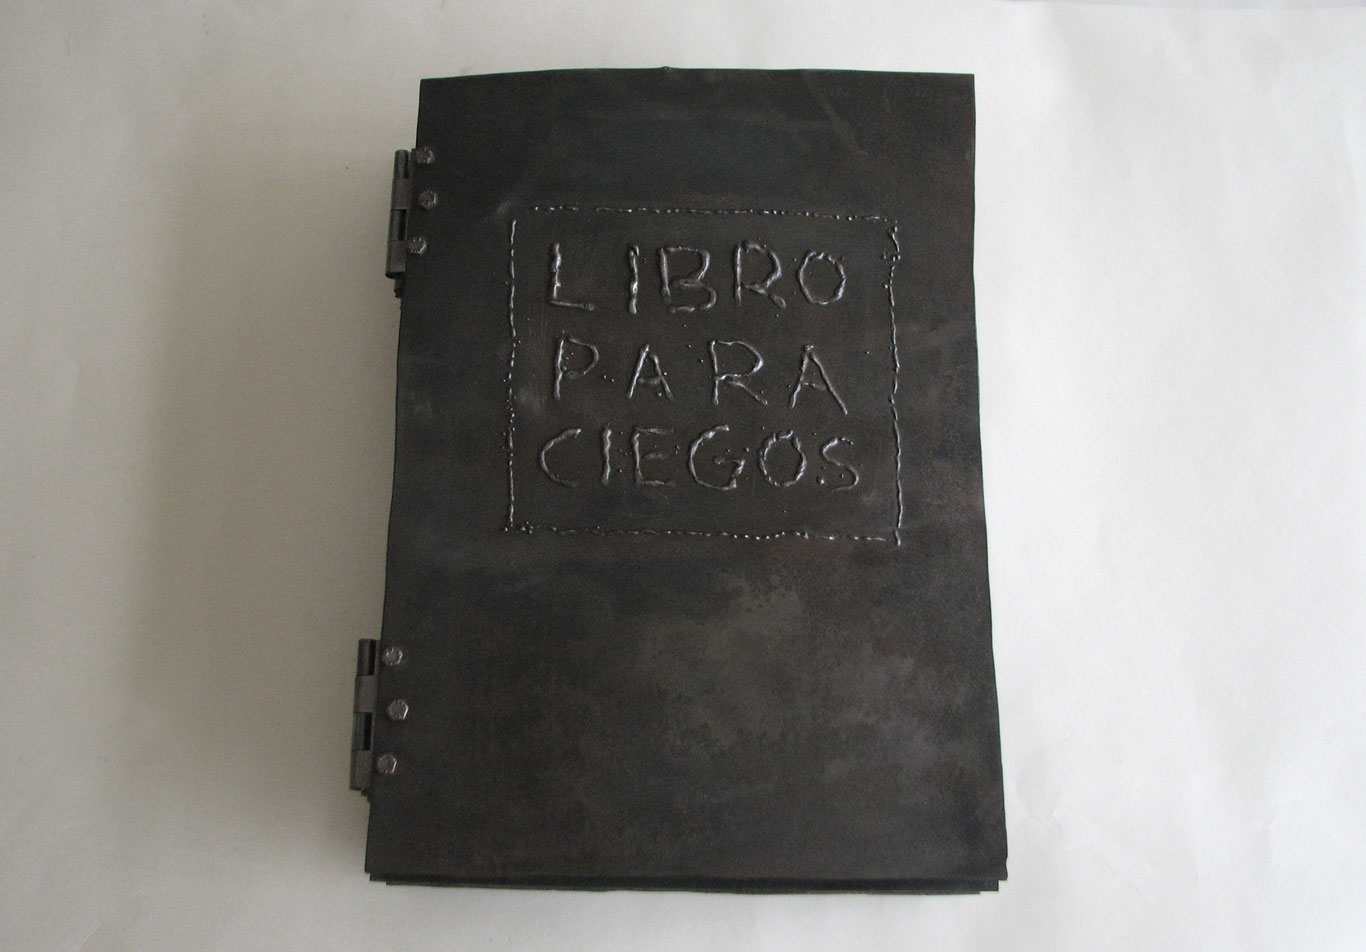 LIBRO
PARA
CIEGOS